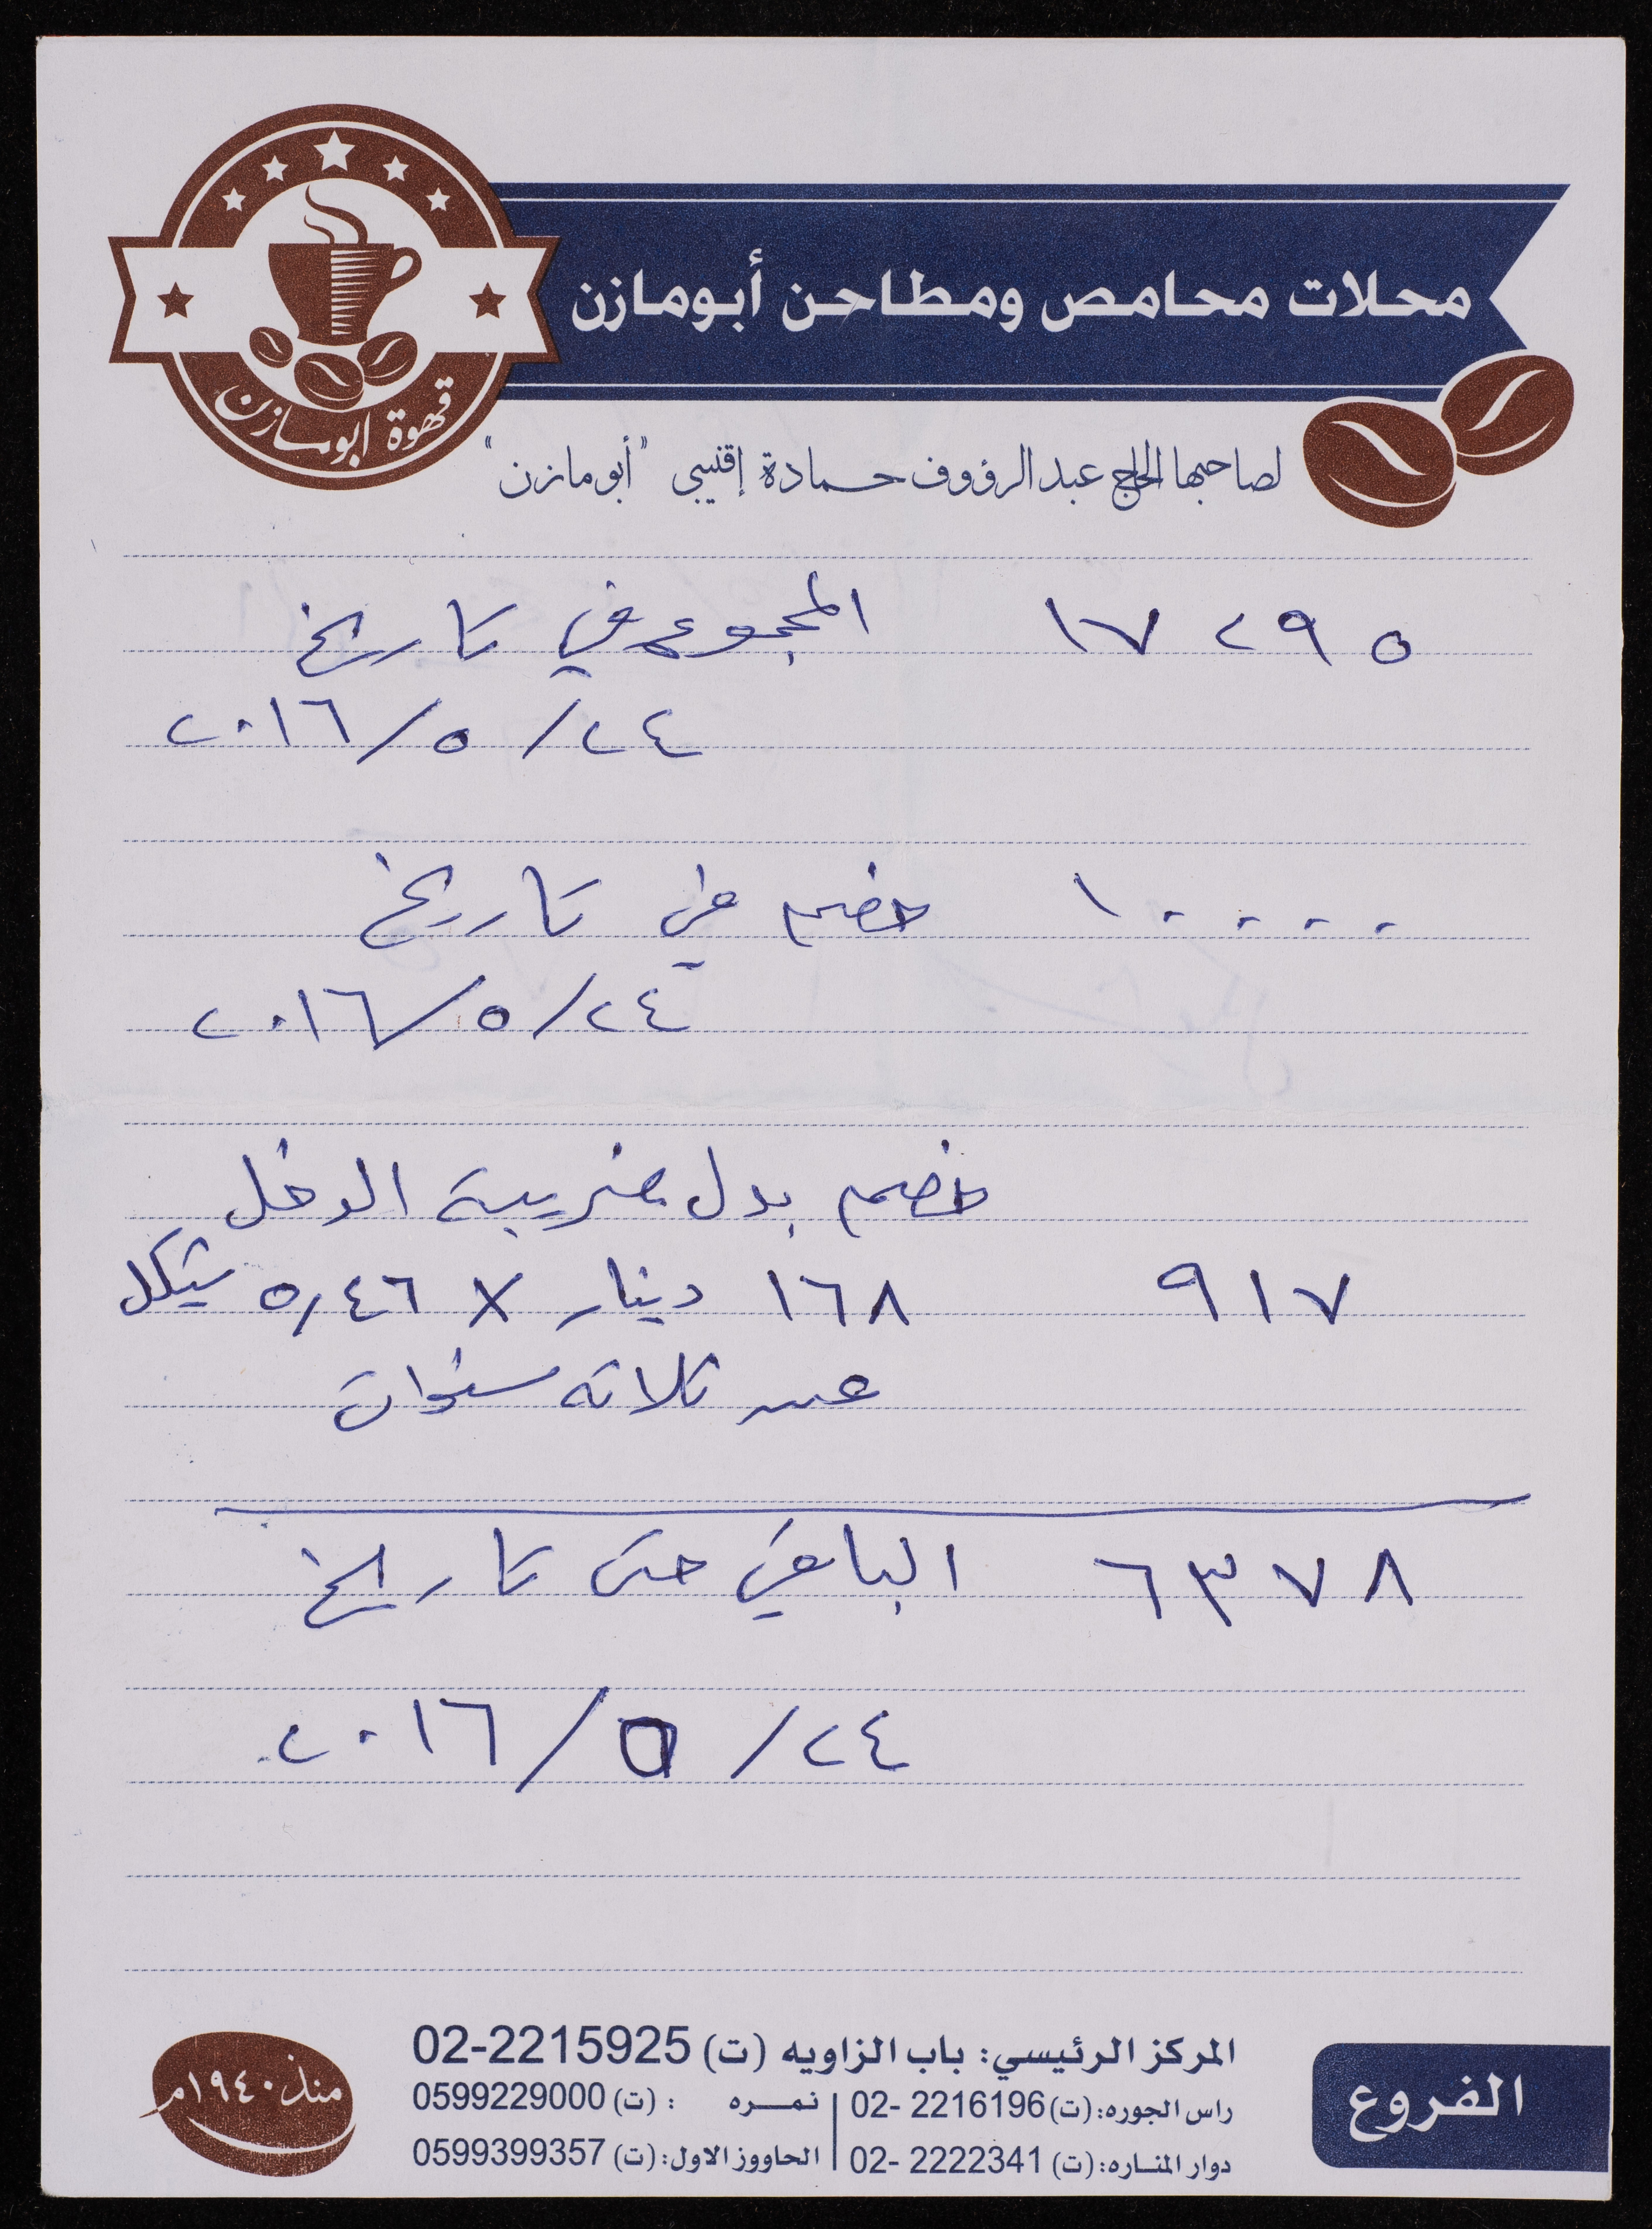 محلات محامص ومطاحن أبومازن
قهوة ابومازن
لصاحبها الحاج عبد الرؤوف حمادة إقنيبي "أبو مازن"
١٧٢٩٥ المجموع في تاريخ
٢٤/٥/٢٠١٦
١٠٠٠٠ خصم في تاريخ
٢٤/٥/٢٠١٦
خصم بدل ضريبة الدخل
٩١٧ ١٦٨ دينار × ٥,٤٦ شيكل
عن ثلاثه سنوات
٦٣٧٨ الباقي حتى تاريخ
٢٤/٥/٢٠١٦
الفروع
المركز الرئيسي: باب الزاويه (ت) 02-2215925
راس الجوره: (ت) 02- 2216196 | نمره : (ت) 0599229000
دوار المناره: (ت) 02- 2222341 | الحاووز الاول: (ت) 0599399357
منذ ١٩٤٠م